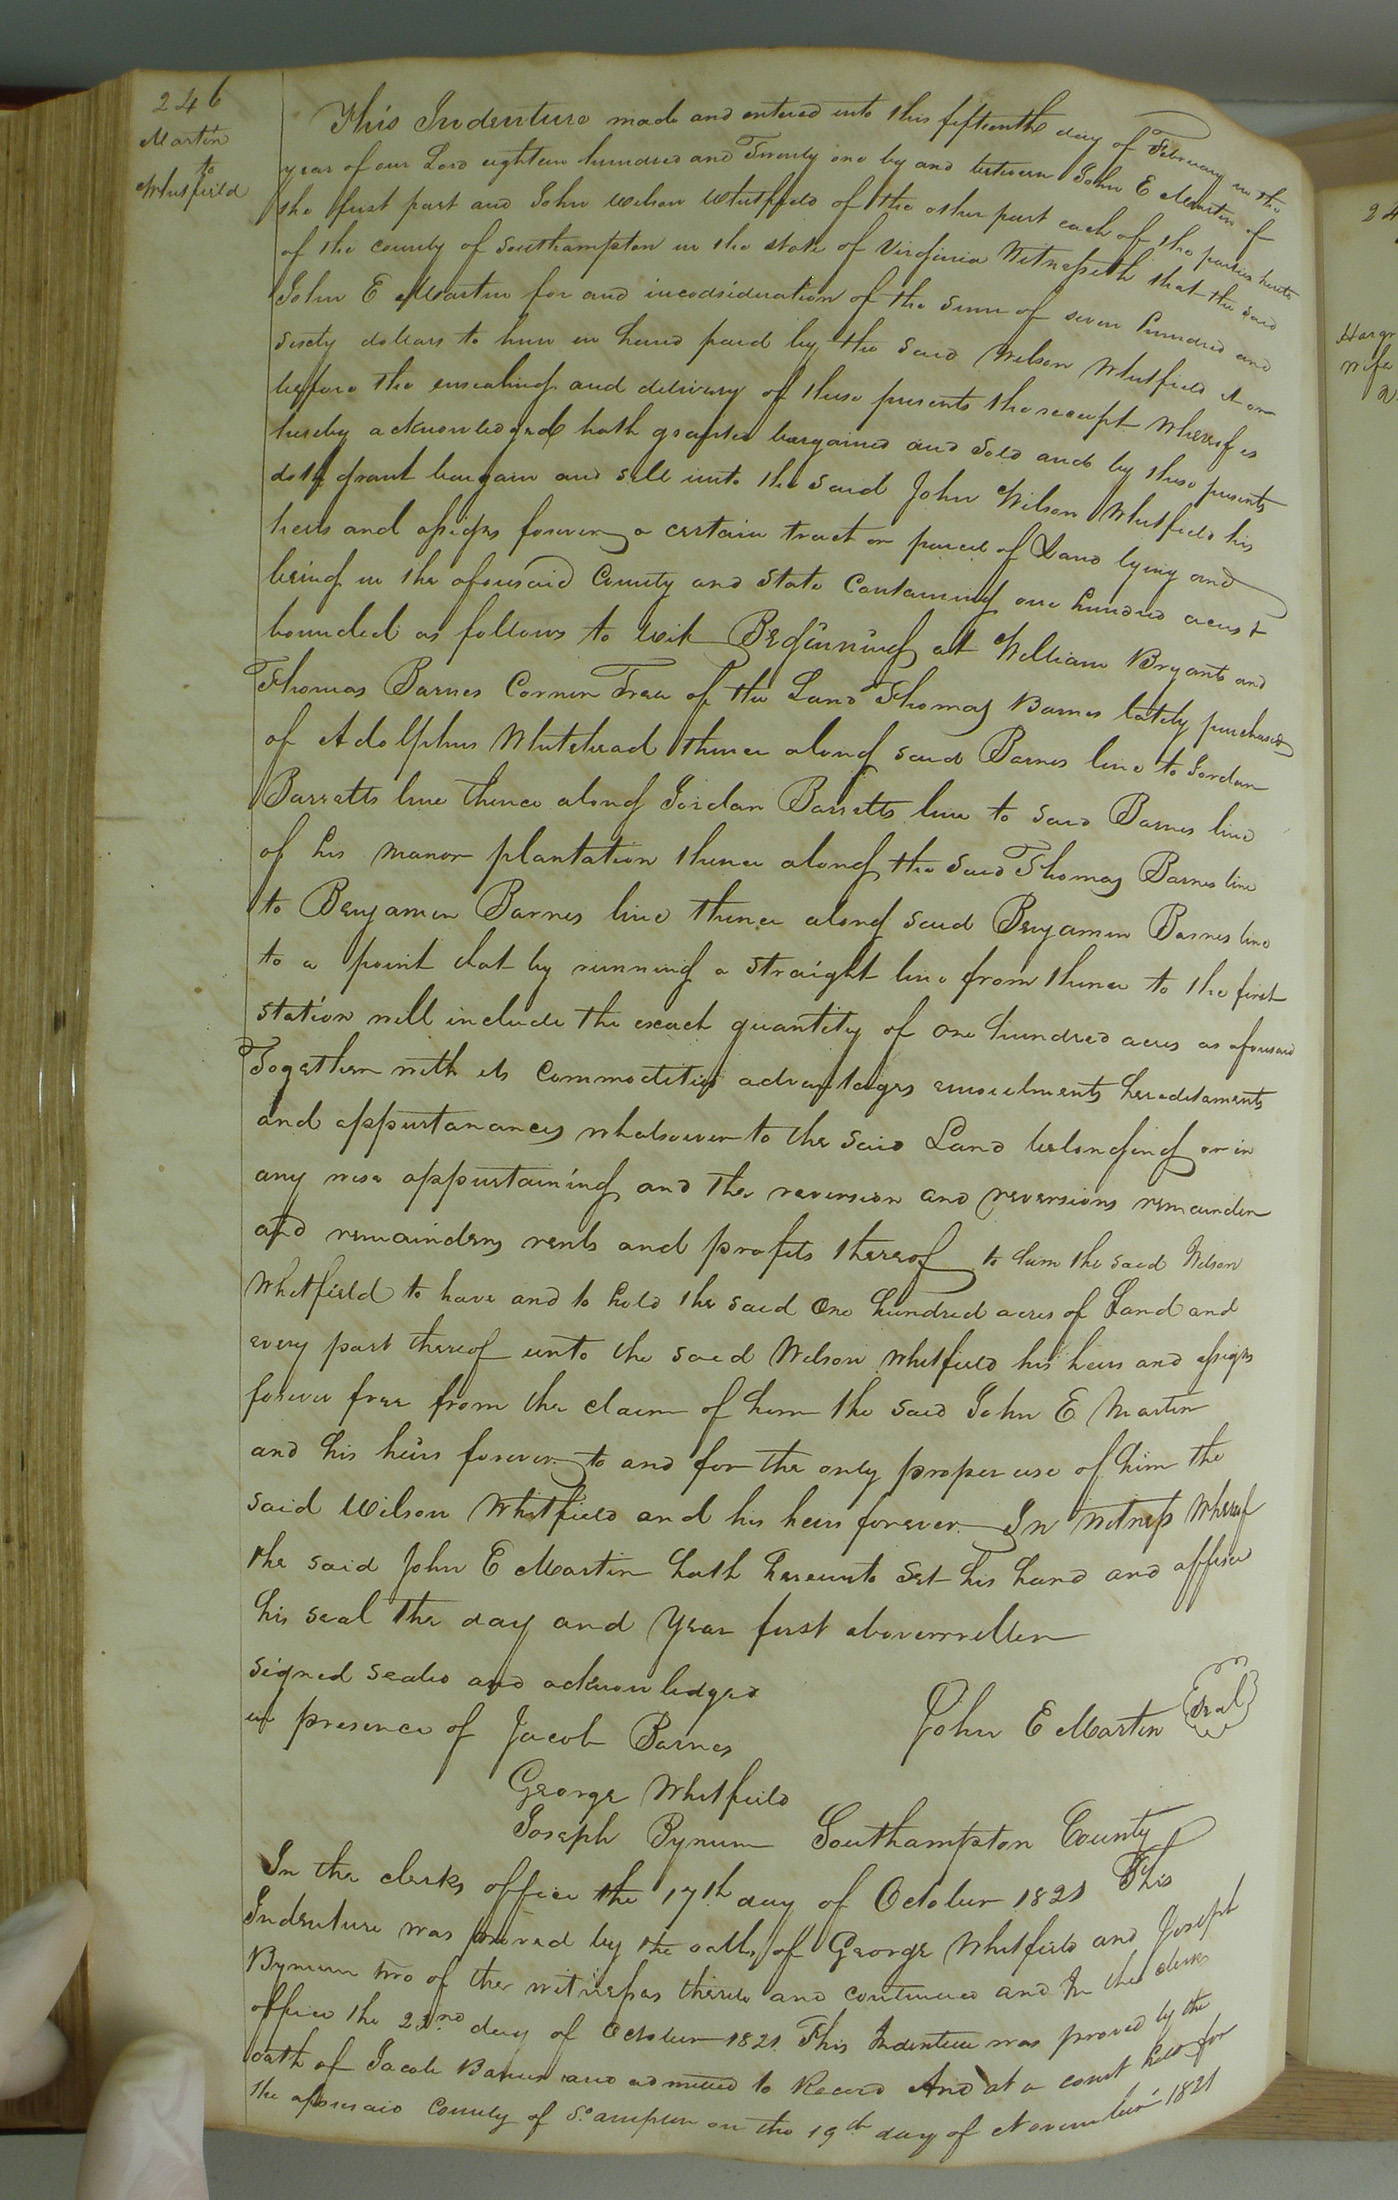 246
Martin
to
Whitfield
This Indenture made and entered into this fifteenth day of February in the
year of our Lord eighteen hundred and Twenty one by and between John E Martin of
the first part and John Wilson Whitfield of the other part each of the parties hereto
of the county of Southampton in the state of Virginia Witnesseth that the said
John E Martin for and inconsideration of the sum of seven hundred and
sixty dollars to him in hand paid by the said Wilson Whitfield at or
before the ensealing and delivery of these presents the receipt whereof is
hereby acknowledged hath granted bargained and sold and by these presents
doth grant bargain and sell unto the said John Wilson Whitfield his
heirs and assigns forever a certain tract or parcel of Land lying and
being in the aforesaid County and State Containing one hundred acres &
bounded as follows to wit Beginning at William Bryants and
Thomas Barnes Corner Tree of the Land Thomas Barnes lately purchased
of Adolphus Whitehead thence along said Barnes line to Jordan
Barretts line thence along Jordan Barretts line to said Barnes line
of his manor plantation thence along the said Thomas Barnes line
to Benjamin Barnes line thence along said Benjamin Barnes line
to a point that by running a straight line from thence to the first
station will include the exact quantity of one hundred acres as aforesaid
Together with its Commodities advantages emoulments hereditaments
and appurtanances whatsoever to the said Land belonging or in
any wise appurtaining and the reversion and reversions remainder
and remainders rents and profits thereof to him the said Wilson
Whitfield to have and to hold the said One hundred acres of Land and
every part thereof unto the said Wilson Whitfield his heirs and assigns
forever free from the claim of him the said John E Martin
and his heirs forever to and for the only proper use of him the
said Wilson Whitfield and his heirs forever In Witness Whereof
the said John E Martin hath hereunto set his hand and affixed
his seal the day and Year first abovewritten
signed sealed and acknowledged
in presence of Jacob Barnes
John E Martin Seal
George Whitfield
Joseph Bynum Southampton County
In the clerks office the 17th day of October 1821 This
Indenture was proved by the oaths of George Whitfield and Joseph
Bynum two of the witnesses thereto and continued and In the clerks
office the 23nd day of October 1821 This Indenture was proved by the
oath of Jacob Barnes and admitted to Record And at a court held for
the aforesaid County of So ampton on the 19th day of November 1821
24
wife